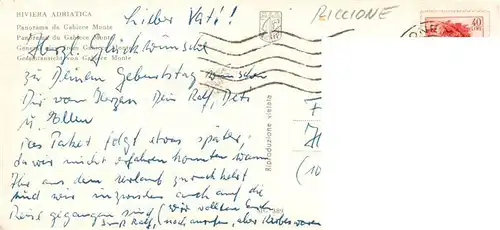 RIVIERA ADRIATICA
Panorama da Gabicce Monte
Panorama du Gabicce Monte
General view from Gabicce Monte
Gesamtansicht von Gabicce Monte
Lieber Vati!
RICCIONE
40
Herzl. Glückwünsche
zu Deinem Geburtstag wünschen
Dir von Herzen Dein Ralf,
u. Ellen
Das Paket folgt etwas später,
da wir nicht erfahren konnten wann
Ihr aus dem Urlaub zurückkehrt
und wir inzwischen auch auf die
Reise gegangen sind (wir wollten Euch
Ralf, noch anrufen, aber
Riproduzione vietata
F
H
(10